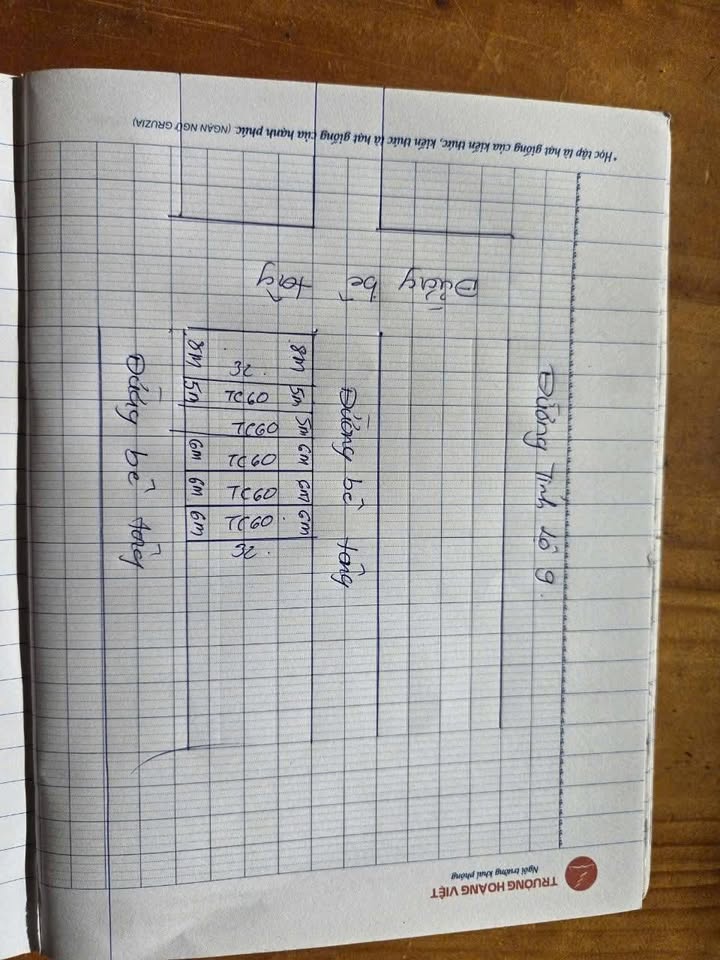 * Học tập là hạt giống của kiến thức, kiến thức là hạt giống của hạnh phúc. (NGẠN NGỮ GRUZIA)
Đường bê tông
Đường Tỉnh Lộ 9.
Đường bê tông
8m 8m
5m 5m
5m
6m 6m
6m 6m
6m 6m
Đường bê tông
TRƯỜNG HOÀNG VIỆT
Ngôi trường khai phóng